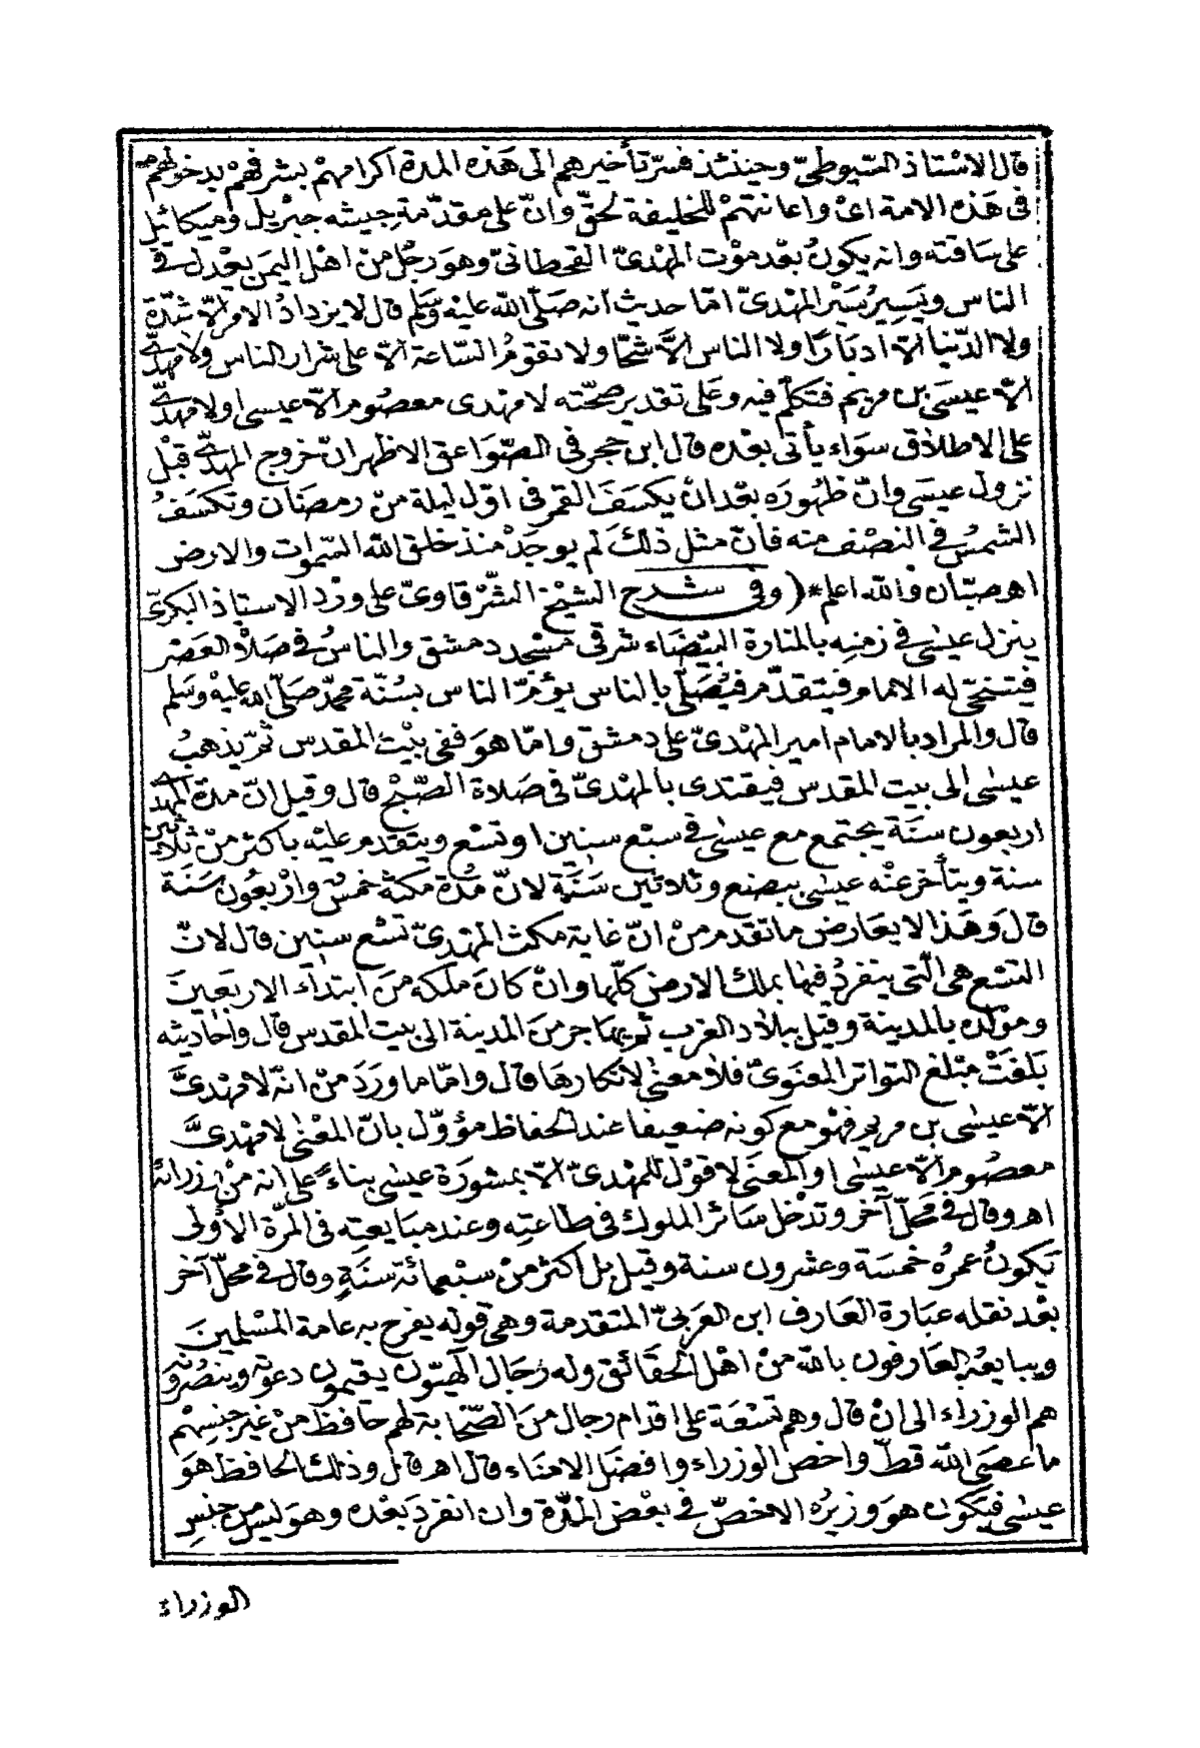 قال الاستاذ السيوطىّ وحينئذ فسرّ تأخيرهم الى هَذه المدة اكرامهمْ بشرفهمْ بدخولهم
فى هَذه الامة اىْ واعانتهمْ للخليفة لحقّ وانّ على مقدّمة جيشه جبْريل وميكائيل
على سَاقته وانه يكونُ بعْد موْت المهْدىّ القحطانىّ وهوَ رجُل من اهْل اليمَن يعْدل فى
الناس ويَسِيرُ سَيْر المهْدىّ امّا حديث انه صَلّى الله عليْه وسَلم قال لا يزدادُ الامر الّا شدّة
ولا الدّنيا الّا ادبارًا ولا الناس الاَّ شحّا ولا تقومُ السّاعة الّا على شرار الناس ولا مهْدىّ
الّا عيسَى بن مريم فتكلّم فيه وعَلى تقدير صحّته لا مهْدى معصُوم الّا عيسى او لا مهْدىّ
على الاطلاق سوَاء يأتى بعْده قال ابن حجر فى الصّوَاعق الاظهر انّ خروج المهدىّ قبْل
نزول عيسَى وانّ ظهُورَه بعْد انْ يكسَفَ القمر فى اوّل ليلة منْ رمضَان وتكسَفُ
الشمسُ فى النصْف منه فانّ مثل ذلكَ لم يوجَدْ منذ خلق الله السّموات والارض
اهـ صبّان والله اعلم *( وفى شرح الشيْخ الشّرْقاوىّ على ورْد الاستاذ البكرىّ
ينزل عيسٰى فى زمنِه بالمنارة البيْضَاء شرقى مسْجد دمشق والناسُ فى صَلاة العَصْر
فيتنحىّ له الامام فيتقدّم فيُصَلّى بالناس يؤمّ الناس بسُنّة محمّد صَلّى الله عليْه وسَلم
قال والمراد بالامام امير المهْدىّ على دمشق وامّا هوَ ففى بيْت المقدس ثمّ يذهبُ
عيسٰى الى بيت المقدس فيقتدى بالمهْدىّ فى صَلاة الصّبْح قال وقيل انّ مدة المهْدىّ
اربعون سنَة يجتمع مع عيسٰى فى سبْع سنين او تسْع ويتقدم عليْه باكثر منْ ثلاثين
سنة ويتأخر عنْه عيسٰى ببضع وثلاثين سَنَة لانّ مُدة مَكثه خمسٌ وارْبعُون سَنَة
قالَ وهَذا لا يعَارض ما تقدم منْ انّ غاية مكث المهْدىّ تسْع سنين قال لانّ
التسْع هى الّتى ينفردُ فيهَا بملك الارض كلّها وانْ كانَ ملكه منَ ابتداَء الاربَعِينَ
وموْلده بالمدينة وقيل ببلاد الغرب ثم يهَاجر منَ المدينة الى بيت المقدس قال واحَاديثه
بَلغَتْ مبْلغ التواتر المعْنوىّ فلا معنى لانكارهَا قال وامّا ما ورَدَ منْ انّه لا مهْدىَّ
الاّ عيسٰى بن مريم فهْو مع كونه ضعيفا عند الحفاظ مؤوّل بانّ المعْنٰى لا مهْدىَّ
معصُوم الّا عيسٰى او المعْنَى لا قوْل للمهْدىّ الّا بمشورَة عيسٰى بناءً على انه منْ وزرائه
اهـ وقال فى محَلّ آخر وتدْخل سَائر الملوك فى طاعتِه وعند مبَايعتِه فى المرّة الاُولى
يَكونُ عمرُه خمسَة وعشرون سنة وقيل بل اكثر منْ سبْعمائة سنَةٍ وقال فى محَلّ آخر
بعْد نقله عبَارة العَارف ابن العَربىّ المتقدمة وهى قوله يفرح به عَامة المسْلمينَ
ويبايعُه العَارفون بالله منْ اهْل الحقَائق وله رجَال الهيّون يقيمون دعوتَه وينصُرونه
هم الوزراء الى انْ قال وهم تسْعَة على اقدام رجال منَ الصّحَابة لهم حَافظ منْ غير جنسِهْم
ما عصَى الله قطّ واخص الوزراء وافضَل الامنَاء قال اهـ قال وذلك الحافظ هوَ
عيسٰى فيكون هوَ وزيرُه الاخصّ فى بعْض المدّة وان انفردَ بعْده وهوَ ليس من جنسِ
الوزراء